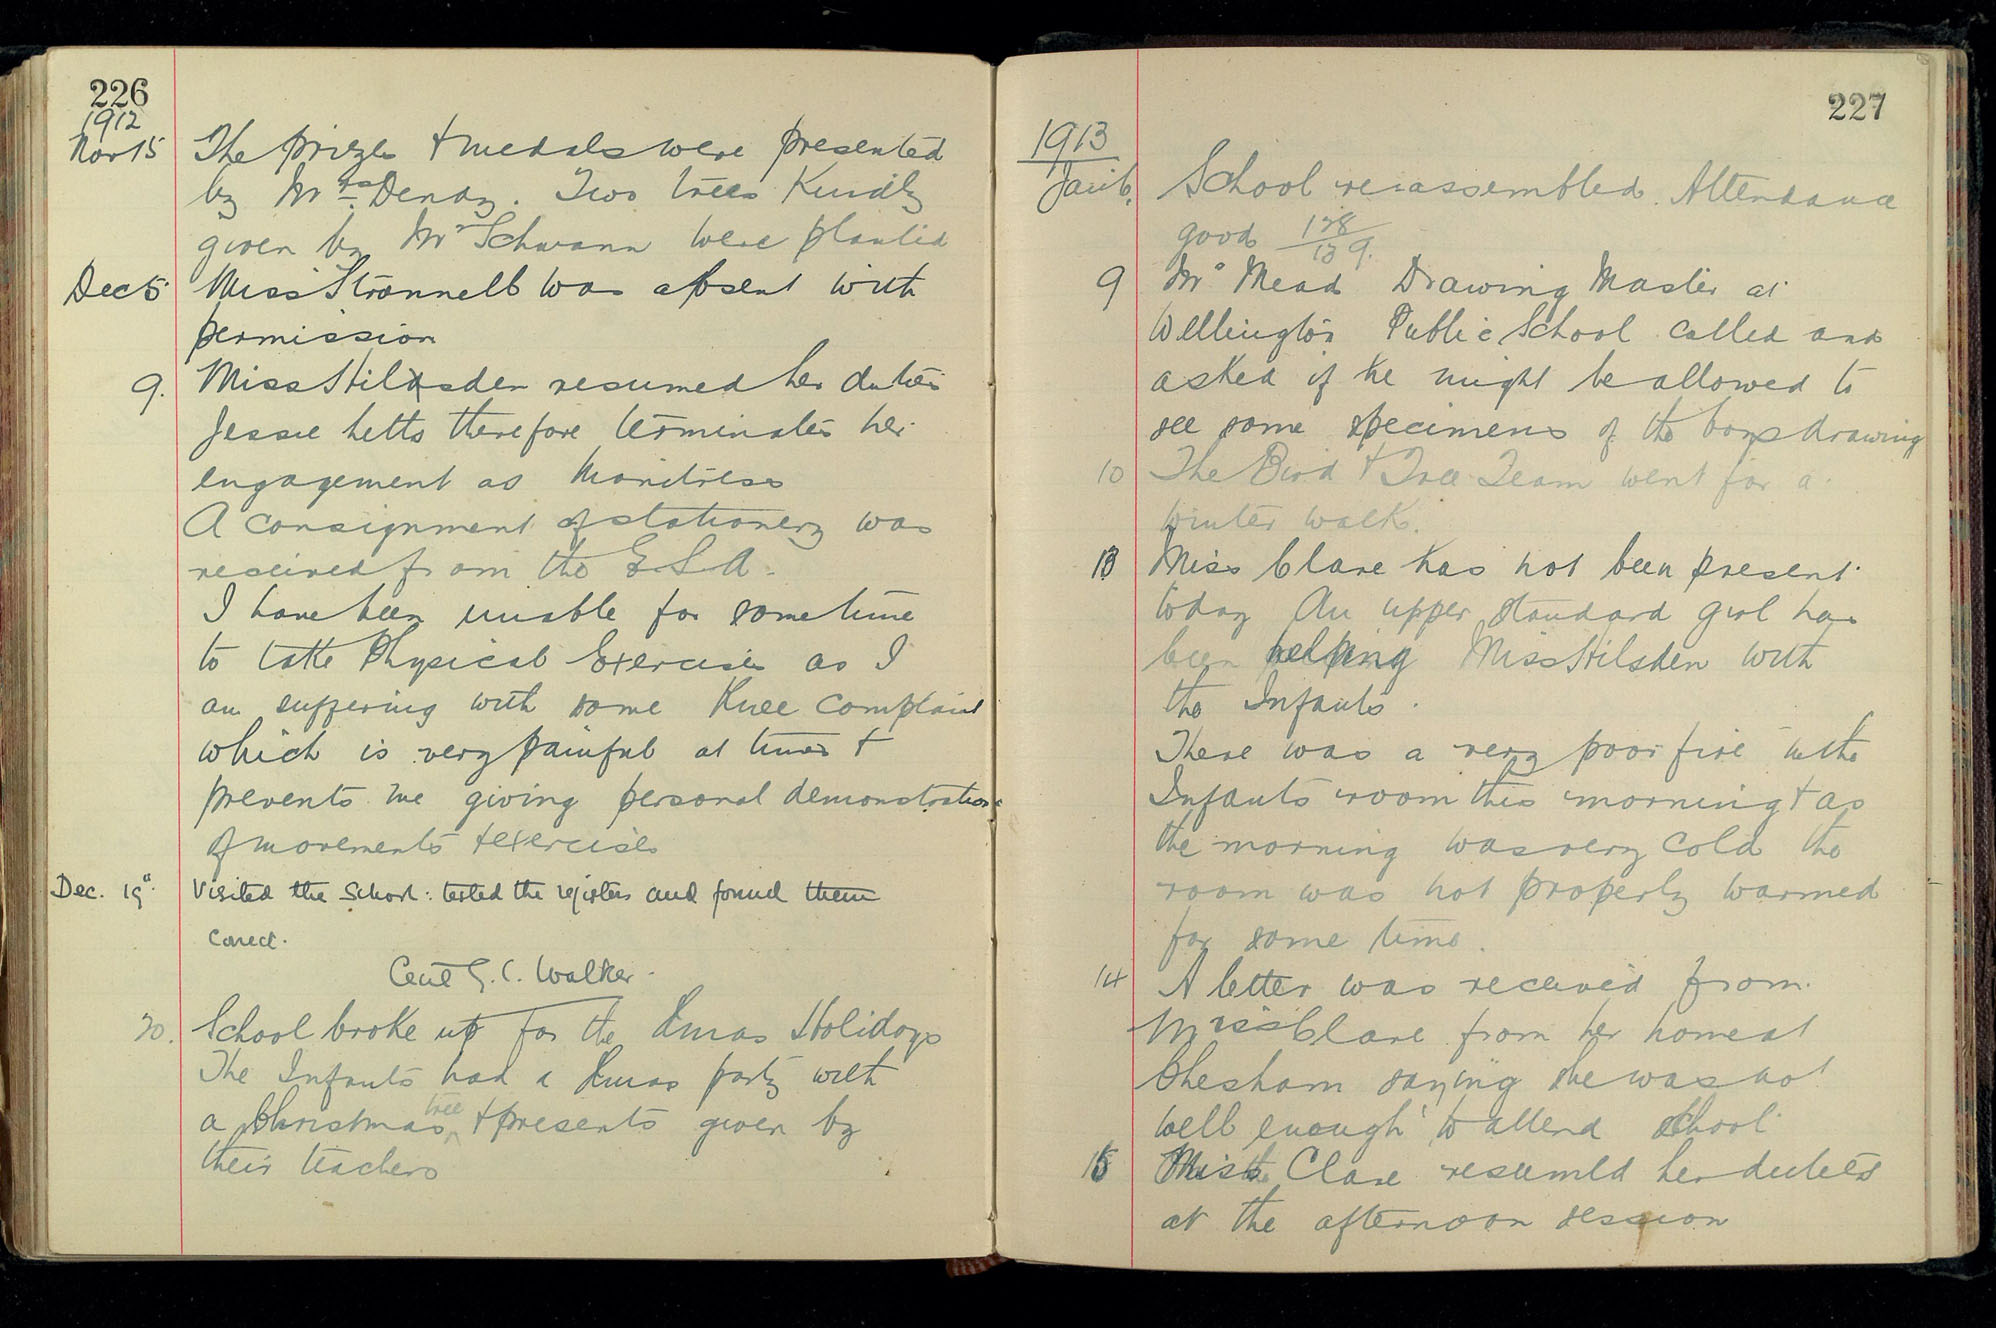 226
1912
Nov 15 The prizes & medals were presented
by Mrs Dendy. Two trees kindly
given by Mr Schwann were planted
Dec 5 Miss Stronnell was absent with
permission
9. Miss Hilsden resumed her duties
Jessie Letts therefore terminates her
engagement as Monitress
A consignment of stationery was
received from the E.S.A.
I have been unable for some time
to take Physical Exercises as I
am suffering with some Knee complaint
which is very painful at times &
prevents me giving personal demonstrations
of movements & exercises
Dec. 19th Visited the School: tested the registers and found them
correct.
Cecil G. C. Walker.
20. School broke up for the Xmas Holidays
The Infants had a Xmas party with
a Christmas tree & presents given by
their teachers
227
1913
Jan 6. School re-assembled. Attendance
good 128/139.
9 Mr Mead Drawing Master at
Wellington Public School called and
asked if he might be allowed to
see some specimens of the boys drawing
10 The Bird & Tree Team went for a
winter walk.
13 Miss Clare has not been present
today An upper standard girl has
been helping Miss Hilsden with
the Infants.
There was a very poor fire in the
Infants room this morning & as
the morning was very cold the
room was not properly warmed
for some time.
14 A letter was received from
Miss Clare from her home at
Chesham saying she was not
well enough to attend school
15 Miss Clare resumed her duties
at the afternoon session